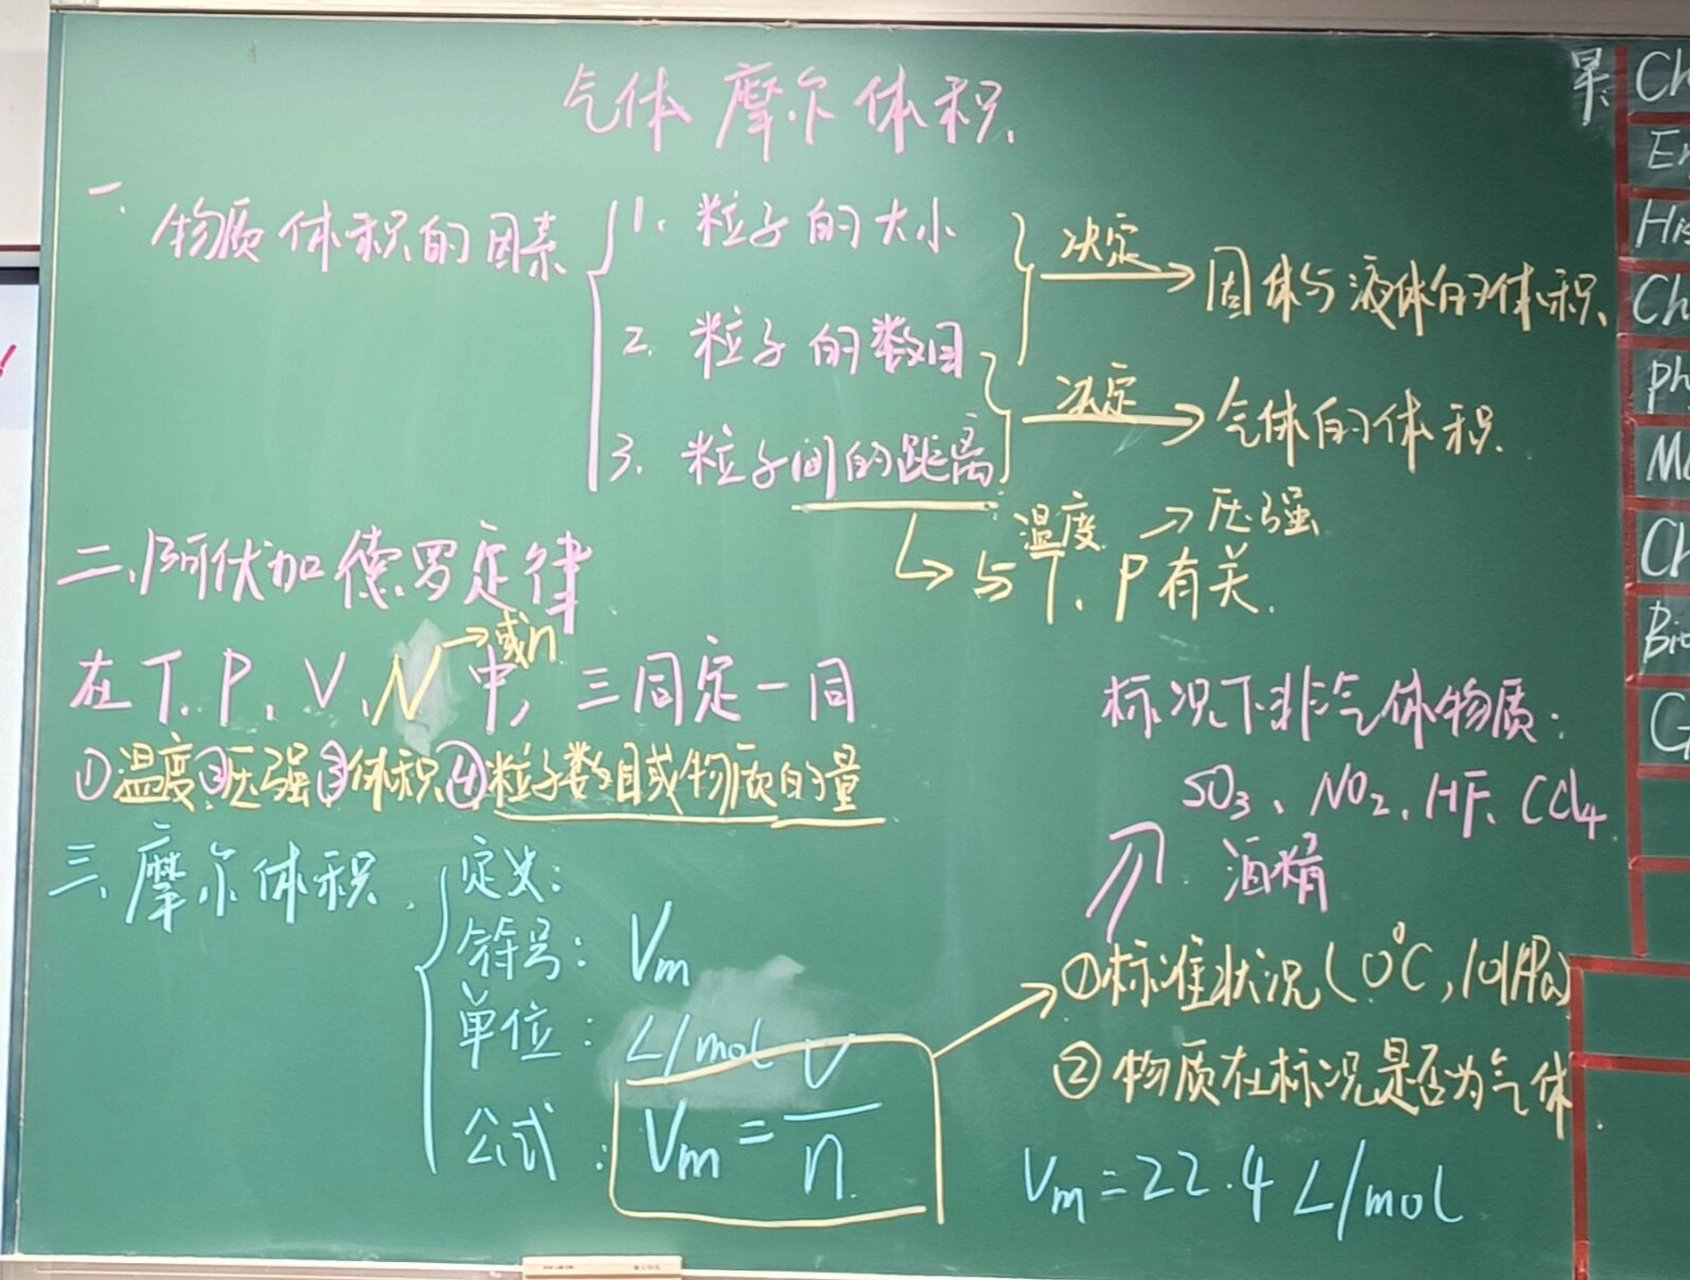 气体摩尔体积.
一. 物质体积的因素
1. 粒子的大小
2. 粒子的数目
3. 粒子间的距离
决定 → 固体与液体的体积、
决定 → 气体的体积.
温度 → 压强
↳ 与T、P有关.
二、阿伏加德罗定律
→或n
在T、P、V、N中，三同定一同
①温度②压强③体积④粒子数目或物质的量
三、摩尔体积.
定义：
符号：Vm
单位：L/mol
公式：Vm = V/n.
标况下非气体物质：
SO₃、NO₂、HF、CCl₄
酒精
①标准状况（0℃，101kPa）
②物质在标况是否为气体.
Vm=22.4 L/mol
早
Ch
En
His
Ch
Ph
Ma
Ch
Bio
G